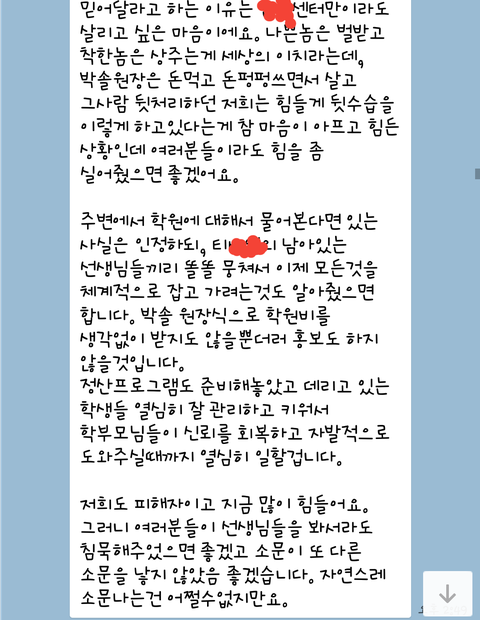 믿어달라고 하는 이유는 센터만이라도
살리고 싶은 마음이에요. 나쁜놈은 벌받고
착한놈은 상주는게 세상의 이치라는데,
박솔원장은 돈먹고 돈펑펑쓰면서 살고
그사람 뒷처리하던 저희는 힘들게 뒷수습을
이렇게 하고있다는게 참 마음이 아프고 힘든
상황인데 여러분들이라도 힘을 좀
실어줬으면 좋겠어요.
주변에서 학원에 대해서 물어본다면 있는
사실은 인정하되, 남아있는
선생님들끼리 똘똘 뭉쳐서 이제 모든것을
체계적으로 잡고 가려는것도 알아줬으면
합니다. 박솔 원장식으로 학원비를
생각없이 받지도 않을뿐더러 홍보도 하지
않을것입니다.
정산프로그램도 준비해놓았고 데리고 있는
학생들 열심히 잘 관리하고 키워서
학부모님들이 신뢰를 회복하고 자발적으로
도와주실때까지 열심히 일할겁니다.
저희도 피해자이고 지금 많이 힘들어요.
그러니 여러분들이 선생님들을 봐서라도
침묵해주었으면 좋겠고 소문이 또 다른
소문을 낳지 않았음 좋겠습니다. 자연스레
소문나는건 어쩔수없지만요.